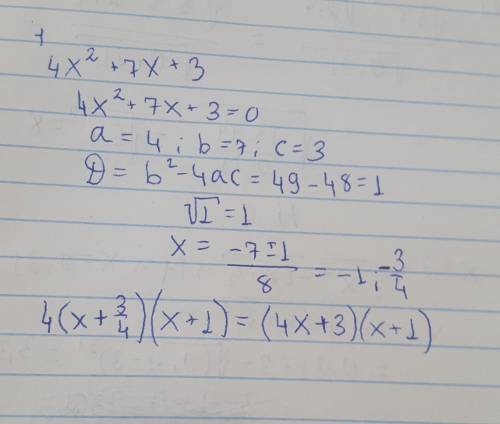 4x² + 7x + 3
4x² + 7x + 3 = 0
a = 4 ; b = 7 ; c = 3
D = b² - 4ac = 49 - 48 = 1
√1 = 1
x = (-7 ± 1) / 8 = -1 ; -3/4
4(x + 3/4)(x + 1) = (4x + 3)(x + 1)